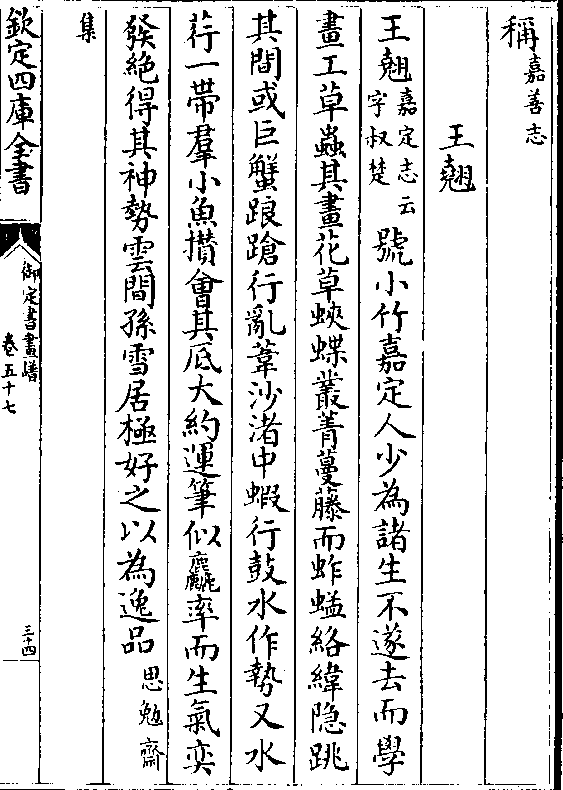 稱嘉善志
王翹
王翹嘉定志云字叔楚號小竹嘉定人少為諸生不遂去而學
畫工草蟲其畫花草蛺蝶叢菁蔓藤而蚱蜢絡緯隐跳
其間或巨蟹踉蹌行亂葦沙渚中蝦行鼓水作勢又水
荇一帶羣小魚攢會其底大約運筆似麤率而生氣奕
發絶得其神勢雲間孫雪居極好之以為逸品思勉齋
集
欽定四庫全書
御定書畫譜
卷五十七
三十四